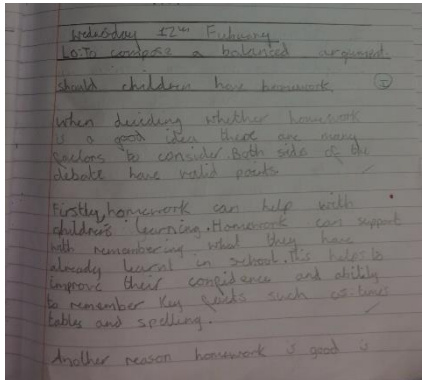 Wednesday 12th Fubruary
LO: To compose a balanced argument.
should children have homework
When deciding whether homework
is a good idea there are many
factors to consider. Both side of the
debate have valid points
Firstly, homework can help with
children's learning. Homework can support
with remembering what they have
already learnt in school. This helps to
improve their confidence and ability
to remember key facts such as times
tables and spelling.
Another reason homework is good is